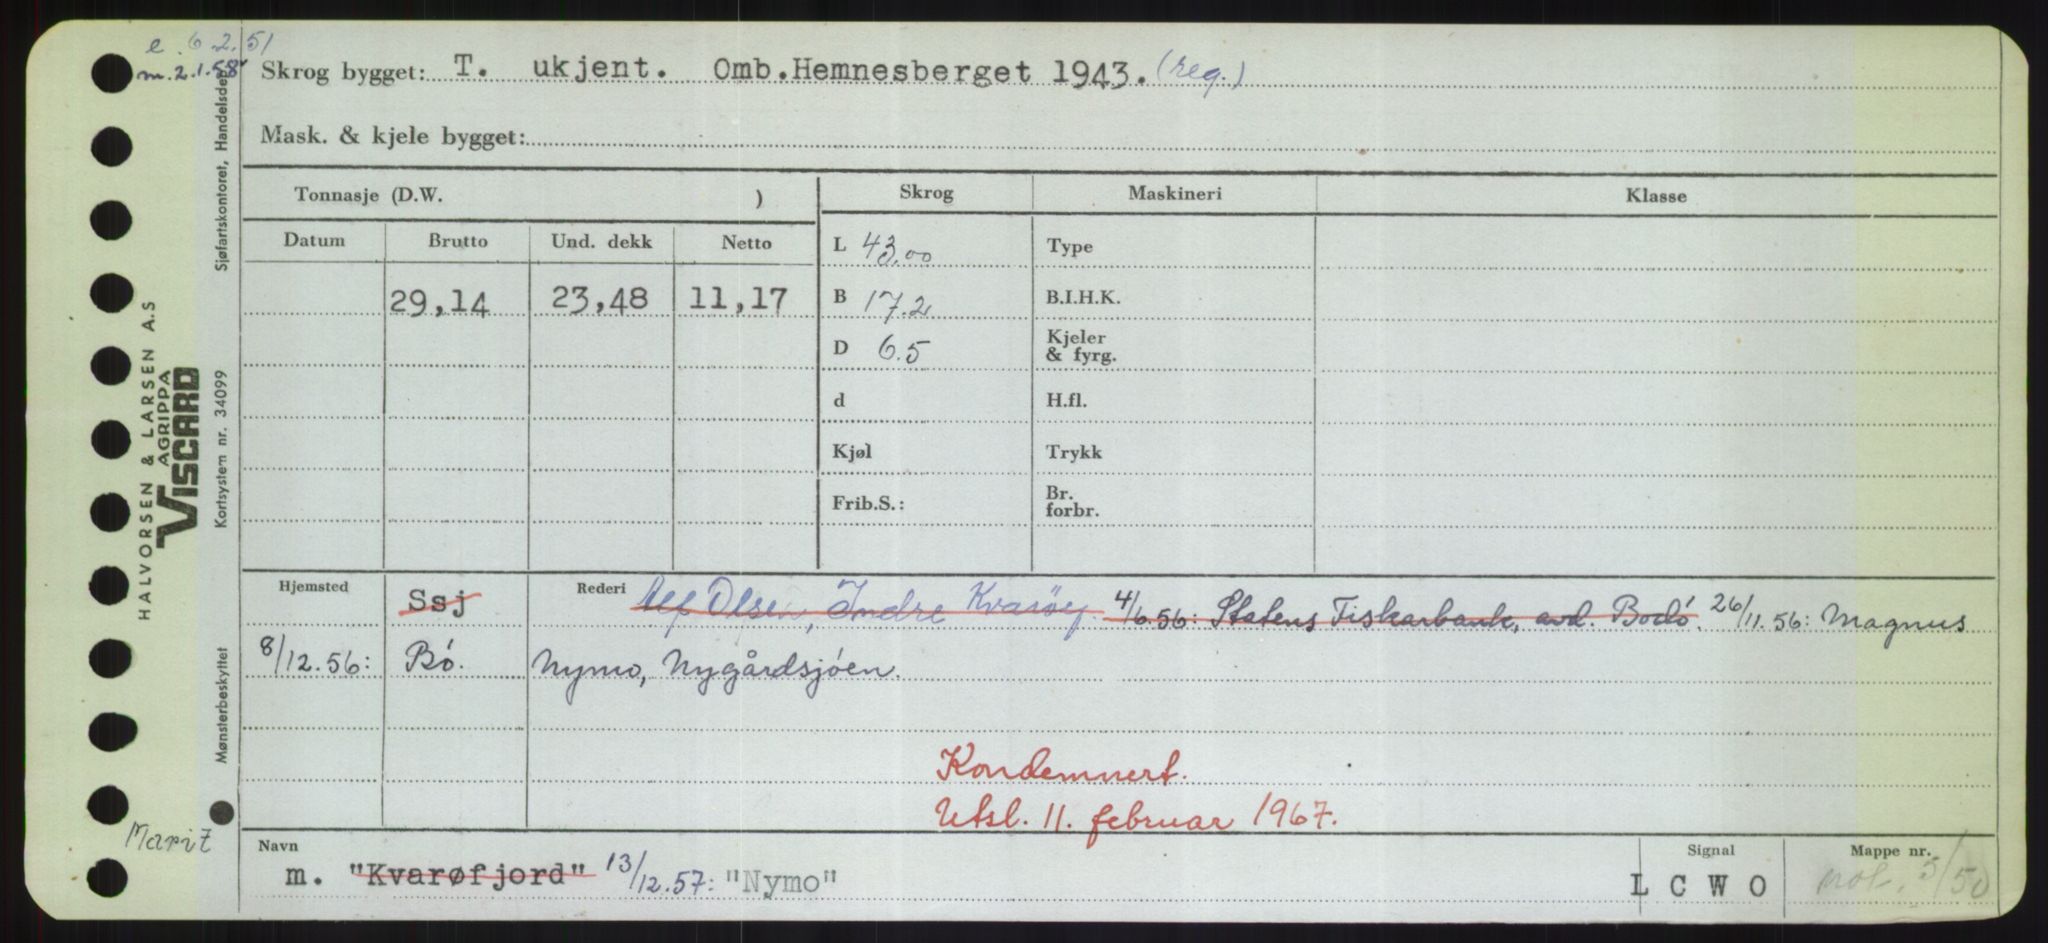 e. 6.2.51
m. 2.1.58
Skrog bygget: T. ukjent. Omb.Hemnesberget 1943. (reg.)
Mask. & kjele bygget:
Tonnasje (D.W. )
Skrog
Maskineri
Klasse
Datum
Brutto
Und. dekk
Netto
29,14
23,48
11,17
L 43.00
B 17.2
D 6.5
d
Kjøl
Frib.S.:
Type
B.I.H.K.
Kjeler
& fyrg.
H.fl.
Trykk
Br.
forbr.
Hjemsted
Ssj
Rederi
Olsen, Indre Kvarøy. 4/6.56: Statens Fiskarbank, avd. Bodó. 26/11.56: Magnus
8/12.56: Bó. Nymo, Nygårdsjóen.
Kondemnert.
Utsl. 11. februar 1967.
Navn
m. "Kvarøfjord" 13/12.57: "Nymo"
Signal
L C W O
Mappe nr.
3/50
Marit
HALVORSEN & LARSEN A.S
AGRIPPA
VISCARD
Mønsterbeskyttet
Kortsystem nr. 34099
Sjøfartskontoret, Handelsdep.